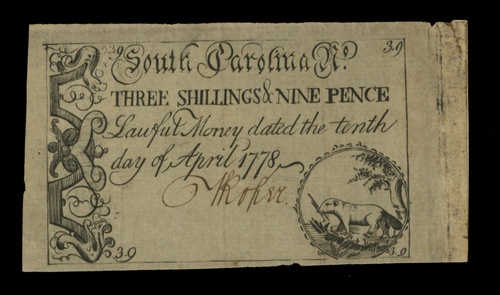 3.9 South Carolina No. 3.9
THREE SHILLINGS & NINE PENCE
Lawful Money dated the tenth
day of April 1778
TRoper.
3.9 3.9